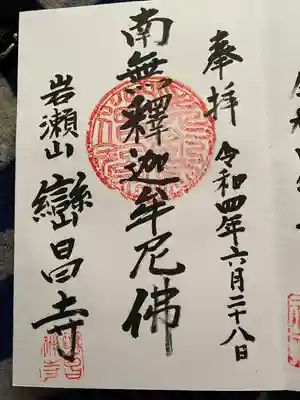 奉拝
令和四年六月二十八日
南無釋迦牟尼佛
岩瀬山
昌寺